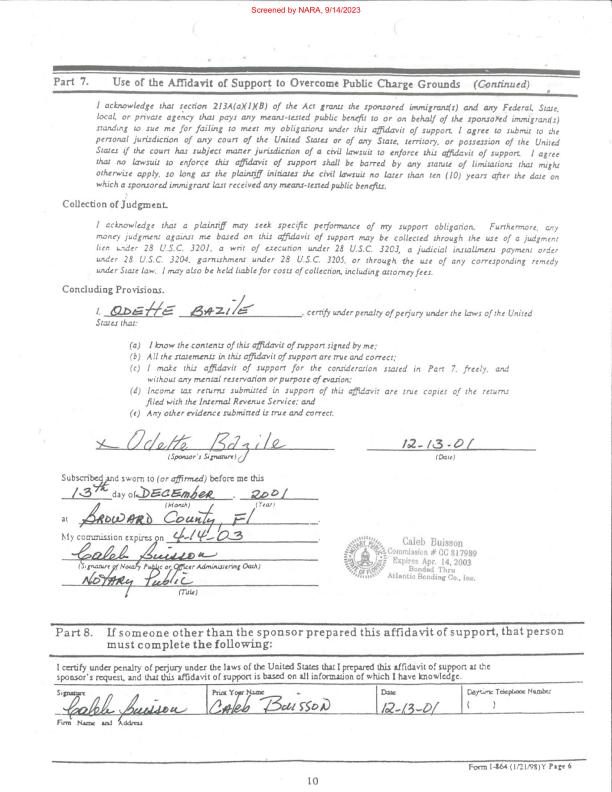 Screened by NARA, 9/14/2023
Part 7. Use of the Affidavit of Support to Overcome Public Charge Grounds (Continued)
I acknowledge that section 213A(a)(1)(B) of the Act grants the sponsored immigrant(s) and any Federal, State,
local, or private agency that pays any means-tested public benefit to or on behalf of the sponsored immigrant(s)
standing to sue me for failing to meet my obligations under this affidavit of support. I agree to submit to the
personal jurisdiction of any court of the United States or of any State, territory, or possession of the United
States if the court has subject matter jurisdiction of a civil lawsuit to enforce this affidavit of support. I agree
that no lawsuit to enforce this affidavit of support shall be barred by any statute of limitations that might
otherwise apply, so long as the plaintiff initiates the civil lawsuit no later than ten (10) years after the date on
which a sponsored immigrant last received any means-tested public benefits.
Collection of Judgment.
I acknowledge that a plaintiff may seek specific performance of my support obligation. Furthermore, any
money judgment against me based on this affidavit of support may be collected through the use of a judgment
lien under 28 U.S.C. 3201, a writ of execution under 28 U.S.C. 3203, a judicial installment payment order
under 28 U.S.C. 3204, garnishment under 28 U.S.C. 3205, or through the use of any corresponding remedy
under State law. I may also be held liable for costs of collection, including attorney fees.
Concluding Provisions.
I, ODETTE BAZILE, certify under penalty of perjury under the laws of the United
States that:
(a) I know the contents of this affidavit of support signed by me;
(b) All the statements in this affidavit of support are true and correct;
(c) I make this affidavit of support for the consideration stated in Part 7, freely, and
without any mental reservation or purpose of evasion;
(d) Income tax returns submitted in support of this affidavit are true copies of the returns
filed with the Internal Revenue Service; and
(e) Any other evidence submitted is true and correct.
x Odette Bazile 12-13-01
(Sponsor's Signature) (Date)
Subscribed and sworn to (or affirmed) before me this
13th day of DECEMBER, 2001
(Month) (Year)
at BROWARD County, Fl
My commission expires on 4-14-03
Caleb Buisson
(Signature of Notary Public or Officer Administering Oath)
NOTARY Public
(Title)
NOTARY PUBLIC STATE OF FLORIDA
Caleb Buisson
Commission # CC 817989
Expires Apr. 14, 2003
Bonded Thru
Atlantic Bonding Co., Inc.
Part 8. If someone other than the sponsor prepared this affidavit of support, that person
must complete the following:
I certify under penalty of perjury under the laws of the United States that I prepared this affidavit of support at the
sponsor's request, and that this affidavit of support is based on all information of which I have knowledge.
Signature Print Your Name Date Daytime Telephone Number
Caleb Buisson CALEB BUISSON 12-13-01 ( )
Firm Name and Address
Form I-864 (1/21/98)Y Page 6
10